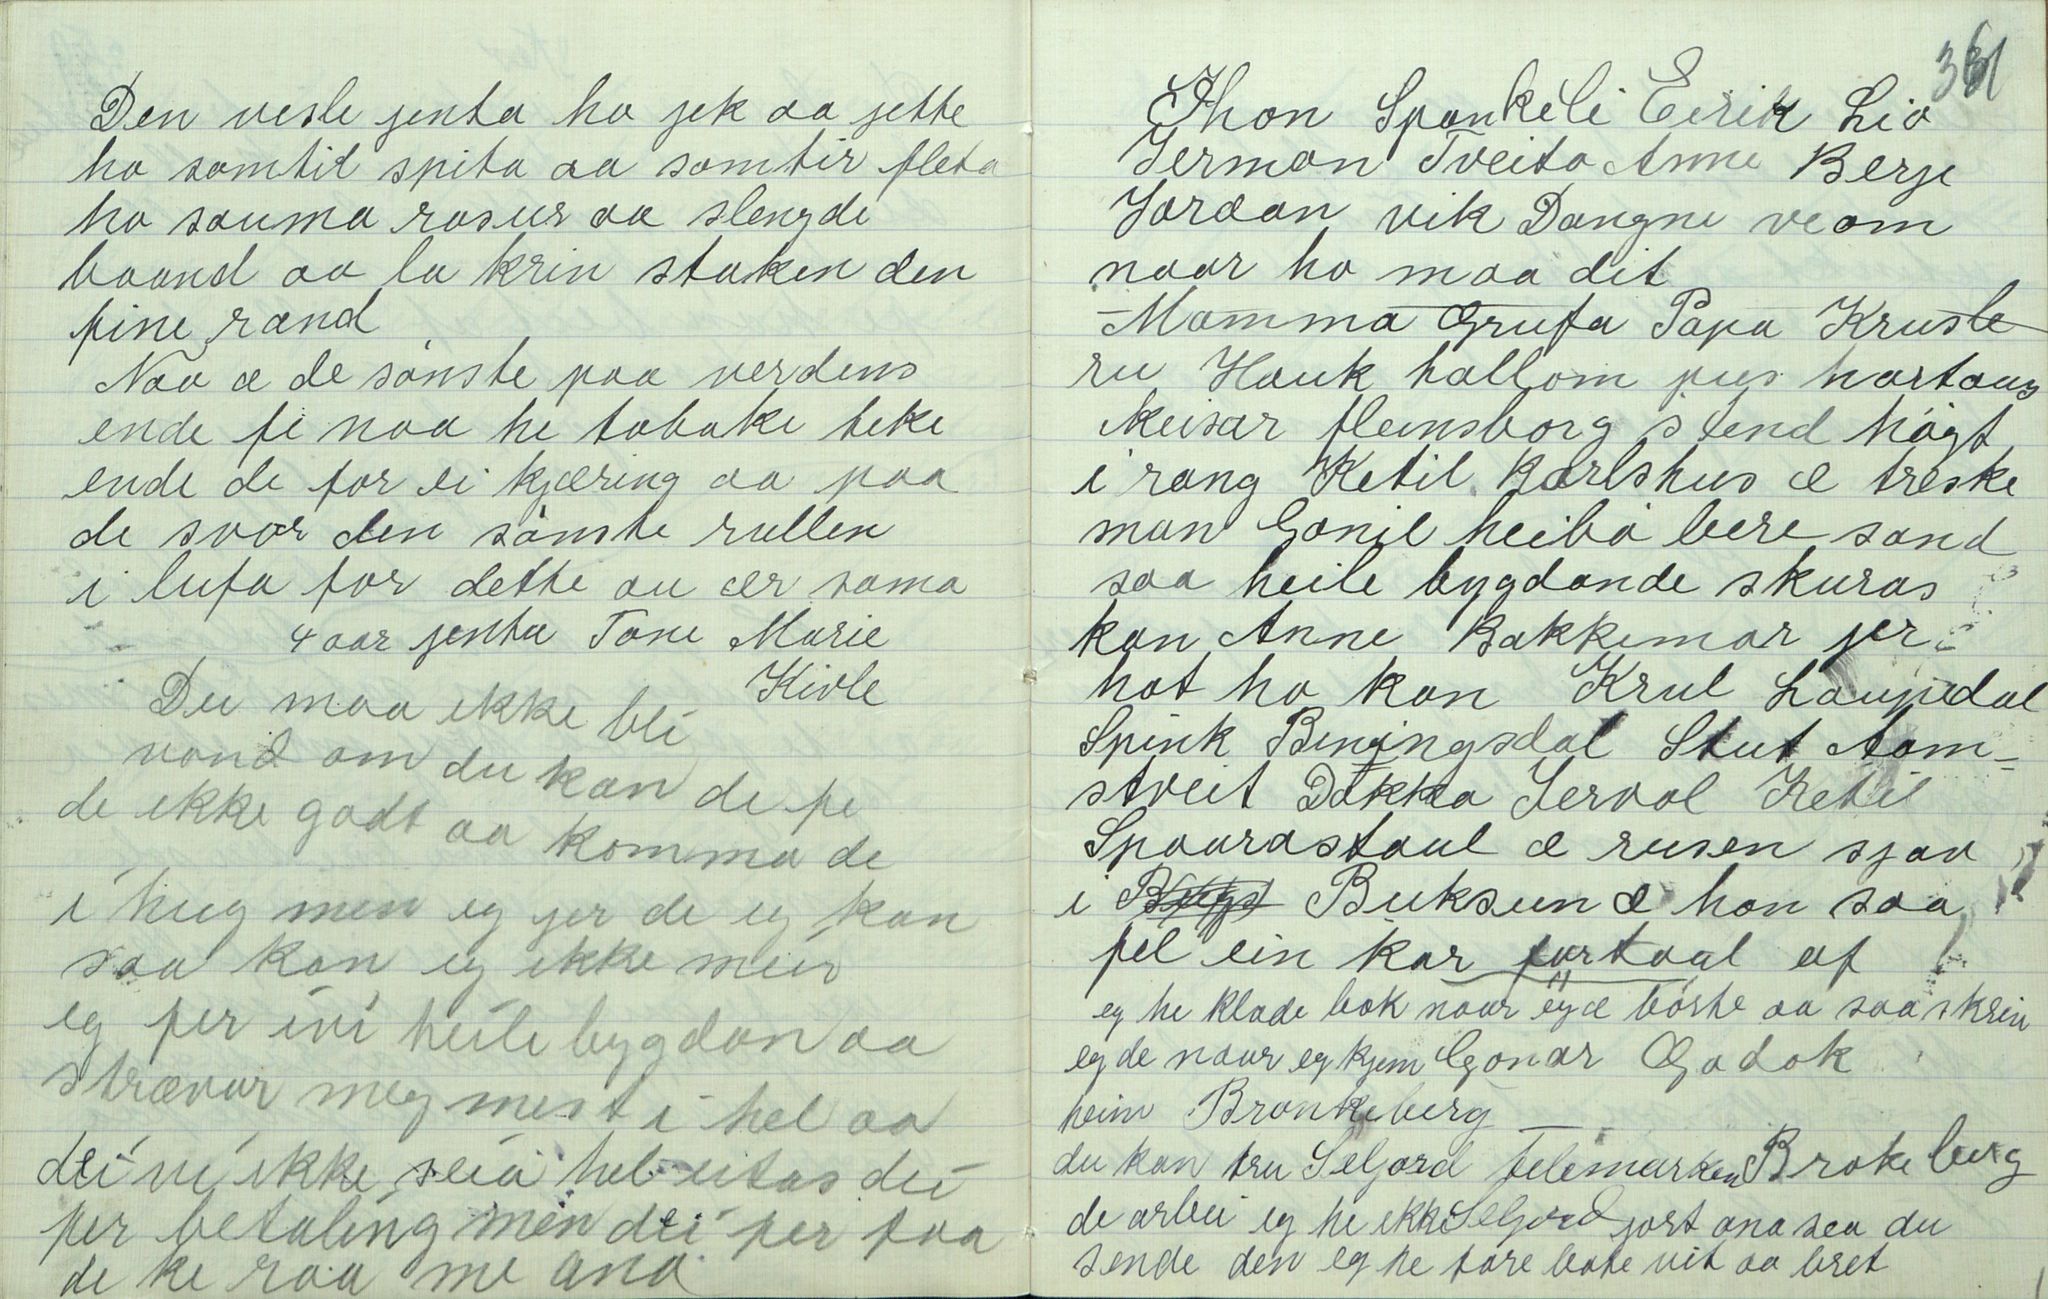 Den vesle jenta ho jek aa jette
ho somtid spita aa somtir fleta
ho souma rosur aa slengde
baand aa la krin staken den
fine rand
Naa æ de sønste paa verdens
ende fe naa he tobake teke
ende de for ei kjæring aa paa
de svor den sønste rullen
i lufa for dette au ær sama
4 aar jenta Tone Marie
Kivle
Du maa ikke bli
vond om du kan de fe
de ikke godt aa komma de
i hug men eg jer de eg kan
saa kan eg ikke meir
eg fer ivi heile bygdan aa
strævar meg mest i hel aa
dei vi ikke seia hel eitas dei
fer betaling men dei fer faa
de ke raa me ana
361
Jhon Spankeli Eirik Lio
Jermon Tveito Anne Berge
Jordan vik Dangne veom
naar ho maa dit
Mamma Grufa Papa Krusle
ru Hauk hallom pus hartaug
keisar flensborg stend høgt
i rang Ketil Karlshus æ treske
man Gonil heibø bere sand
saa heile bygdande skuras
kan Anne Bakkemor jer
hot ho kan Krul Laupedal
Spink Beningsdal Stut Aom-
stveit Dokka Jerval Ketil
Spaardstaul æ rusen sjaa
i Buksund han saa
fel ein kar fortaal af
eg he klade bok naar eg æ børte aa saa skrin
eg de naar eg kjem Gonar Gadok
heim Bronkeberg
du kan tru Seljord telemarken Brokeberg
de arbei eg he ikke Seljord gort ana sea du
sende den eg he fare bote vit aa bret